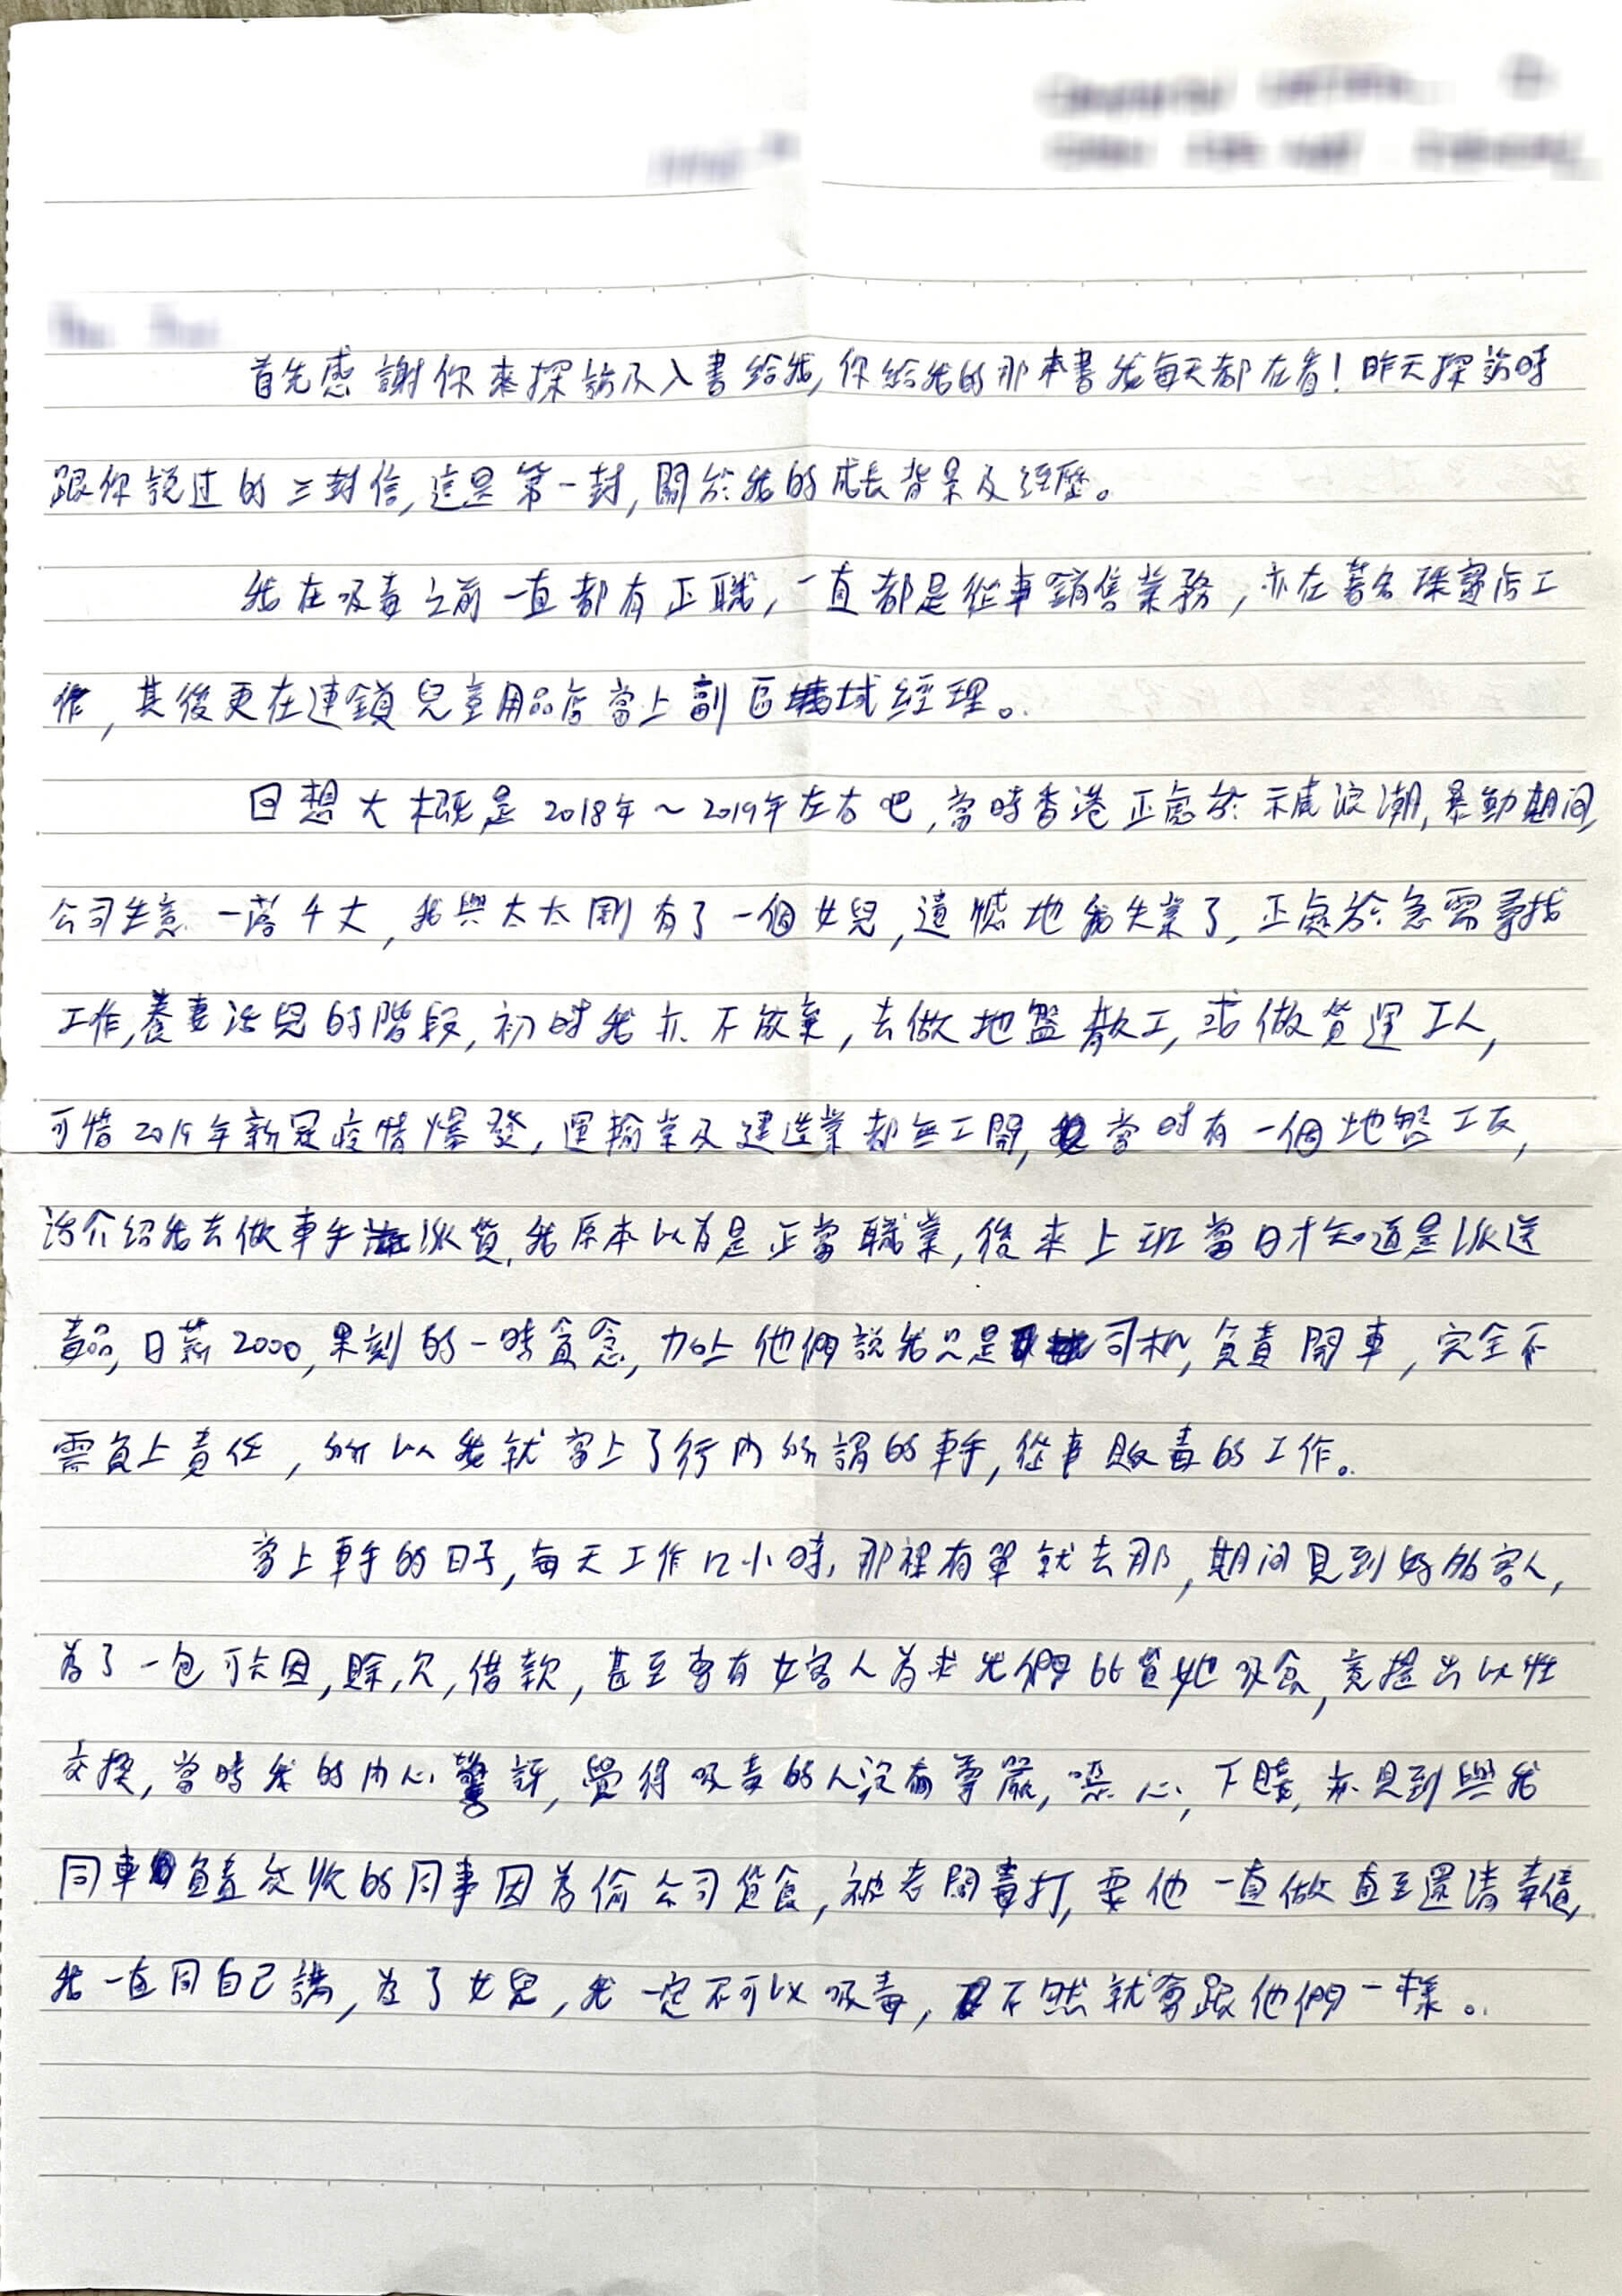 首先感謝你來探訪及入書給我,你給我的那本書我每天都在看!昨天探訪時
跟你說过的三封信,這是第一封,關於我的成長背景及經歷。
我在吸毒之前一直都有正職,一直都是從事銷售業務,亦在著名珠寶店工
作,其後更在連鎖兒童用品店當上副區域經理。
回想大概是2018年~2019年左右吧,當時香港正處於示威浪潮,暴動期间,
公司生意一落千丈,我與太太剛有了一個女兒,遺憾地我失業了,正處於急需尋找
工作,養妻活兒的階段,初時我亦不放棄,去做地盤散工,或做貨運工人,
可惜2019年新冠疫情爆發,運輸業及建造業都無工開,當時有一個地盤工友,
話介紹我去做車手派貨,我原本以為是正當職業,後來上班當日才知道是派送
毒品,日薪2000,果刻的一時貪念,加上他們說我只是司机,負責開車,完全不
需負上責任,所以我就當上了行內所謂的車手,從事販毒的工作。
當上車手的日子,每天工作12小時,那裡有單就去那,期间見到好多客人,
為了一包可卡因,賒,欠,借款,甚至會有女客人為求我們比貨她吸食,竟提出以性
交換,當時我的內心驚訝,覺得吸毒的人沒有尊嚴,噁心,下賤,亦見到與我
同車負責交收的同事因為偷公司貨食,被老闆毒打,要他一直做直至還清幸債,
我一直同自己講,為了女兒,我一定不可以吸毒,不然就會跟他們一樣。